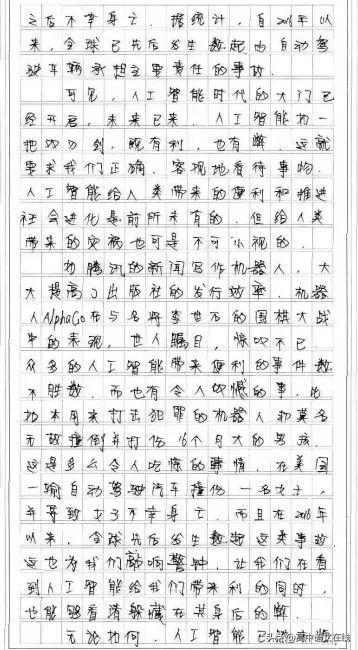 之后不幸身亡。据统计,自2016年以
来,全球已先后发生数起由自动驾
驶车辆承担主要责任的事故。
可见,人工智能时代的大门已
经开启,未来已来。人工智能如一
把双刃剑,既有利,也有弊,这就
要求我们正确、客观地看待事物。
人工智能给人类带来的便利和推进
社会进化是前所未有的,但给人类
带来的灾祸也可是不可小视的。
如腾讯的新闻写作机器人,大
大提高了出版社的发行效率。机器
人AlphaGo在与名将李世石的围棋大战
中的表现,世人瞩目,惊叹不已。
众多的人工智能带来便利的事件数
不胜数,而也有令人叹憾的事,比
如本用来打击犯罪的机器人却莫名
无故撞倒并打伤16个月大的男孩,
这是多么令人吃惊的事情。在美国
一辆自动驾驶汽车撞伤一名女子,
并导致女子不幸身亡,而且在2016年
以来,全球先后发生数起这类事故
这也为我们敲响警钟,让我们在看
到人工智能给我们带来利的同时,
也能够看清躲藏在其身后的弊。
无论如何,人工智能已
头条@高中语文在线